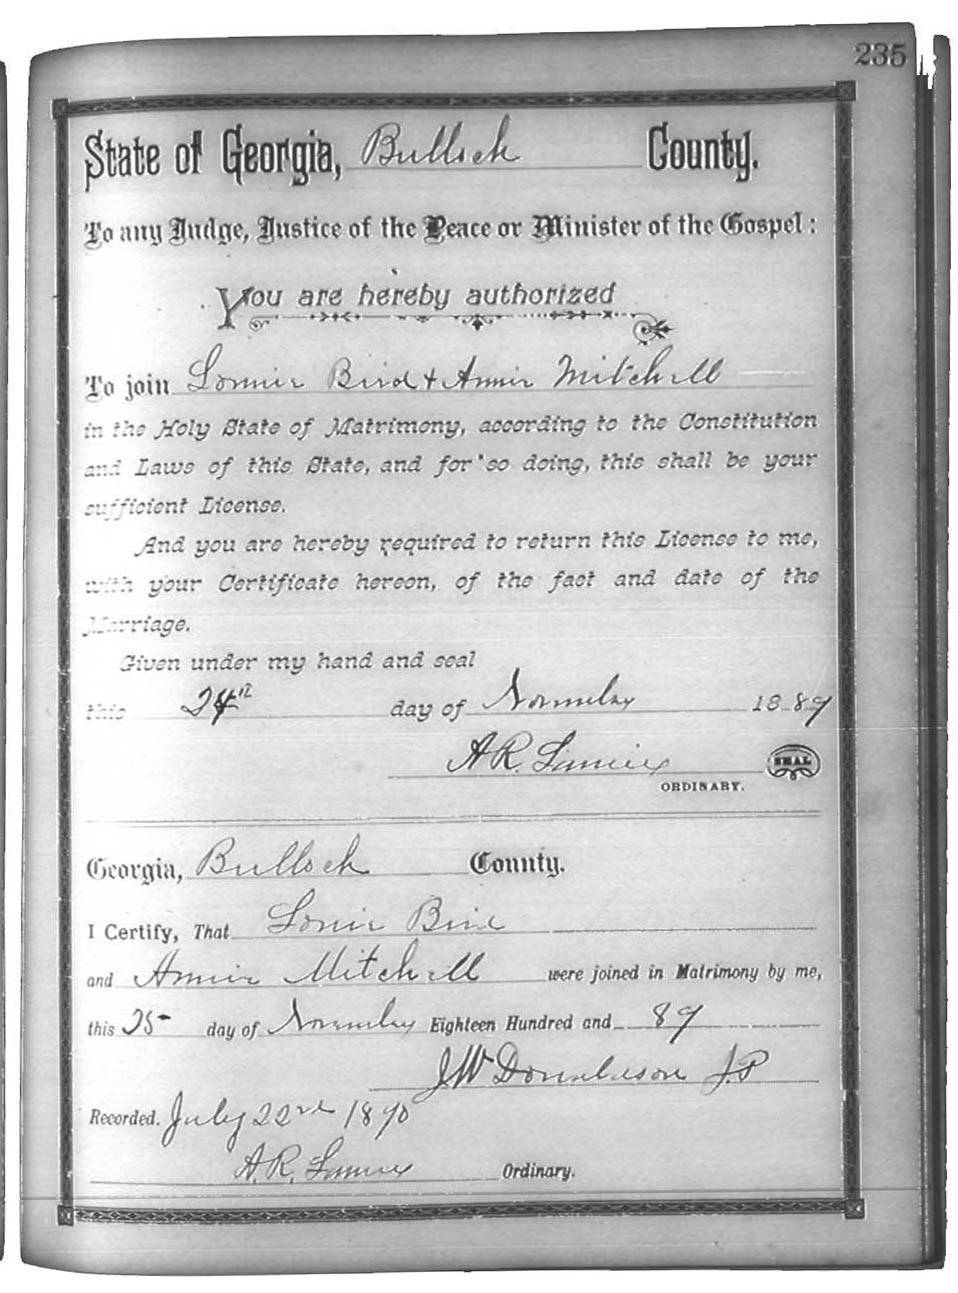 235
State of Georgia, Bulloch County.
To any Judge, Justice of the Peace or Minister of the Gospel:
You are hereby authorized
To join Lonnie Bird & Annie Mitchell
in the Holy State of Matrimony, according to the Constitution
and Laws of this State, and for so doing, this shall be your
sufficient License.
And you are hereby required to return this License to me,
with your Certificate hereon, of the fact and date of the
Marriage.
Given under my hand and seal
this 24th day of November 1889
A R. Lanier SEAL
ORDINARY.
Georgia, Bulloch County.
I Certify, That Lonie Bird
and Annie Mitchell were joined in Matrimony by me,
this 25 day of November Eighteen Hundred and 89
J W Donaldson J. P
Recorded. July 22nd 1890
A. R. Lanier Ordinary.